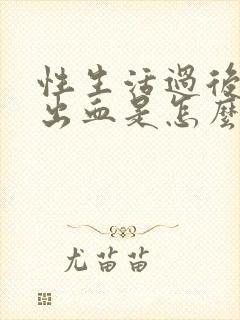 性生活過後
出血是怎麼
尤苗苗